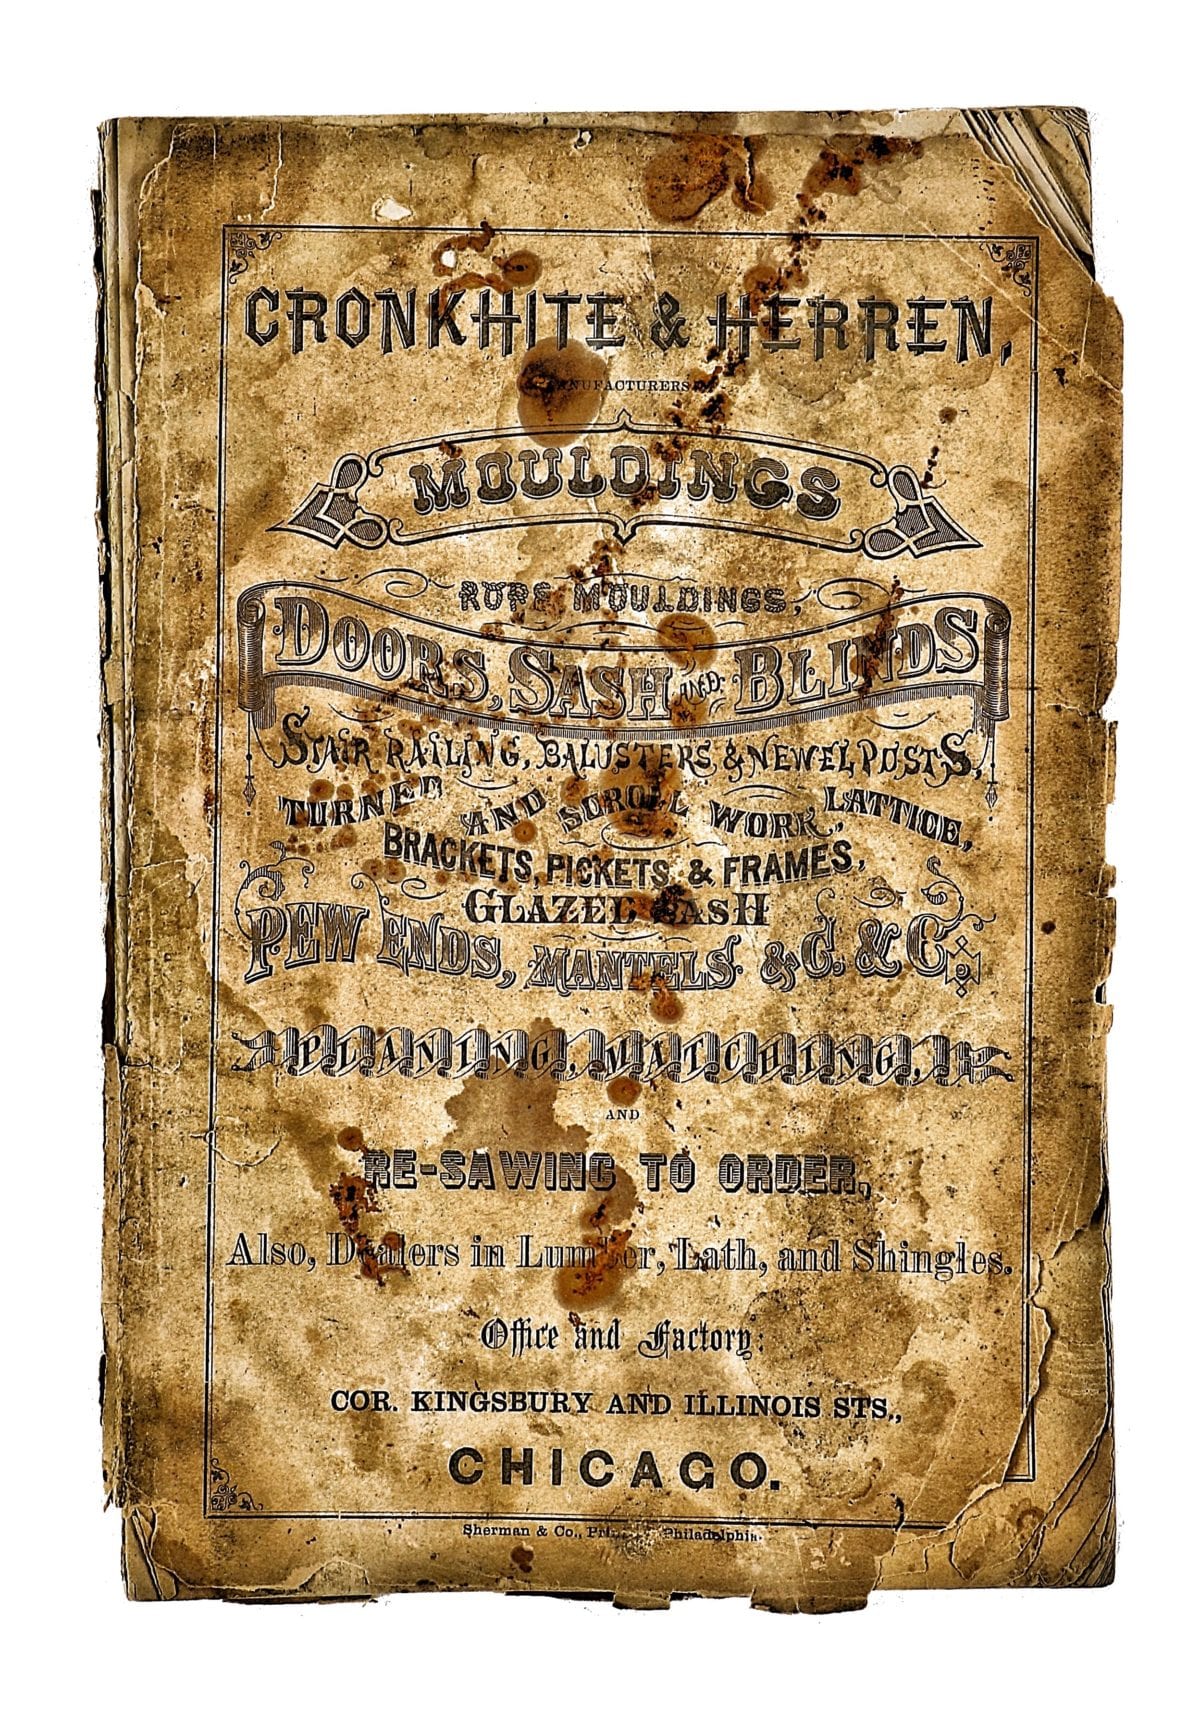 CRONKHITE & HERREN,
MANUFACTURERS OF
MOULDINGS
ROPE MOULDINGS,
DOORS, SASH AND BLINDS
STAIR RAILING, BALUSTERS, & NEWEL POSTS,
TURNED AND SCROLL WORK, LATTICE,
BRACKETS, PICKETS, & FRAMES,
GLAZED SASH
PEW ENDS, MANTELS &C. &C.
PLANING, MATCHING,
AND
RE-SAWING TO ORDER,
Also, Dealers in Lumber, Lath, and Shingles.
Office and Factory:
COR. KINGSBURY AND ILLINOIS STS.,
CHICAGO.
Sherman & Co., Philadelphia.